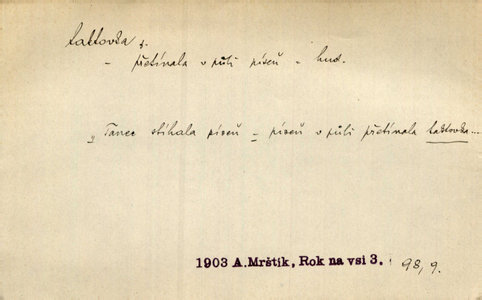 taktovka f.
– přetínala v půli píseň – hud.
„Tanec stíhala píseň – píseň v půli přetínala taktovka...
1903 A.Mrštík, Rok na vsi 3. 98, 9.